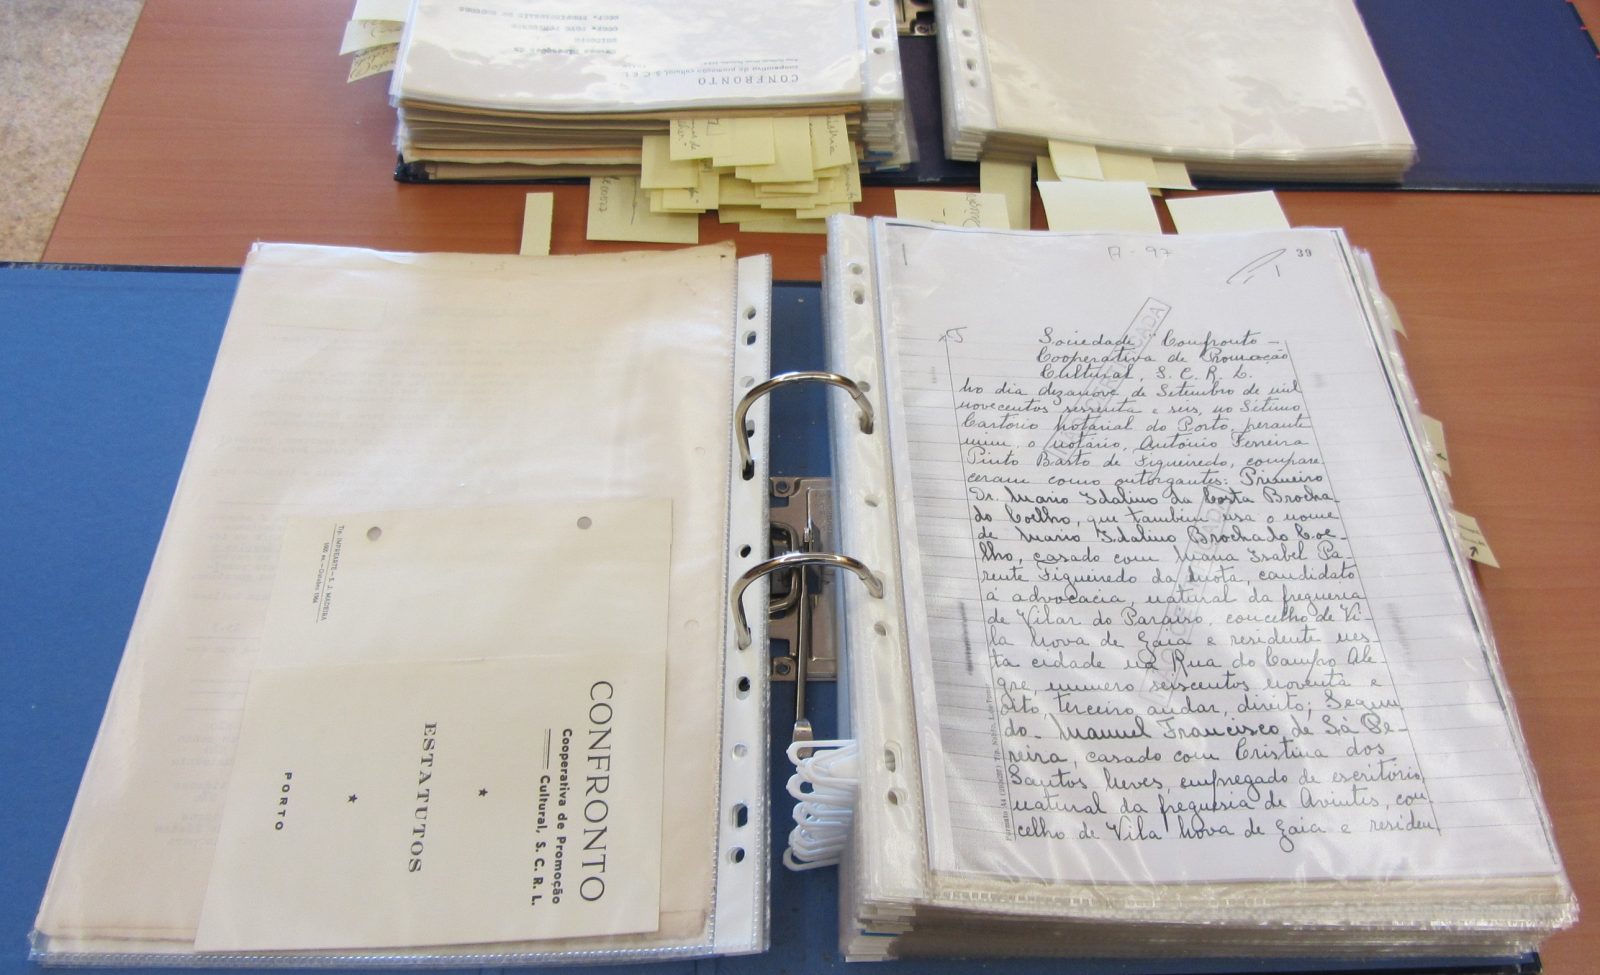 CONFRONTO
Cooperativa de Promoção
Cultural, S. C. R. L.
ESTATUTOS
PORTO
Tip. IMPRIARTE — R. J. MADEIRA
CONFRONTO
cooperativa de promoção cultural, S.C.R.L.
A - 97
39
Sociedade "Confronto -
Cooperativa de Promoção
Cultural, S. C. R. L.
No dia dezanove de Setembro de mil
novecentos sessenta e seis, no Sétimo
Cartorio Notarial do Porto, perante
mim, o notário, António Ferreira
Pinto Basto de Figueiredo, compare-
ceram como outorgantes: Primeiro
Dr. Mario Idalino da Costa Brocha-
do Coelho, que também usa o nome
de Mario Idalino Brochado Coe-
lho, casado com Maria Isabel Pa-
rente Figueiredo da Mota, candidato
á advocacia, natural da freguesia
de Vilar do Paraiso, concelho de Vi-
la Nova de Gaia e residente nes-
ta cidade na Rua do Campo Ale-
gre, numero seiscentos noventa e
oito, terceiro andar, direito; Segun-
do - Manuel Francisco de Sá Pe-
reira, casado com Cristina dos
Santos Neves, empregado de escritório,
natural da freguesia de Avintes, con-
celho de Vila Nova de Gaia e residen